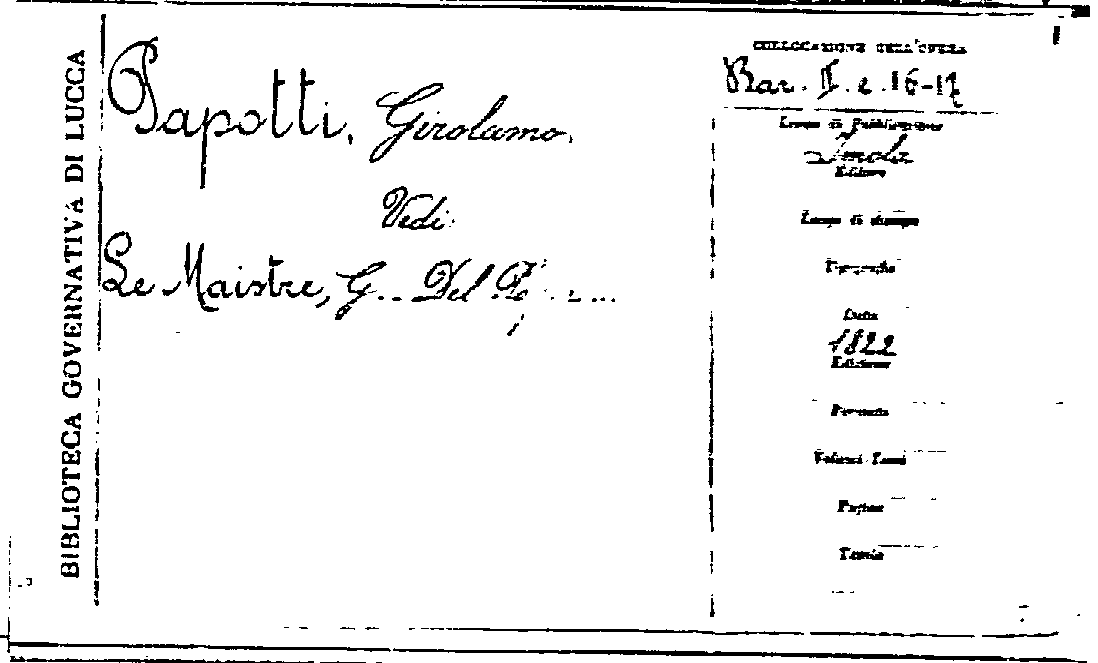 BIBLIOTECA GOVERNATIVA DI LUCCA
Papotti, Girolamo.
Vedi
Le Maistre, G... Del P...
COLLOCAZIONE DELL'OPERA
Bar. II. e. 16-17
Luogo di Pubblicazione
Imola
Editore
Luogo di stampa
Tipografia
Data
1822
Edizione
Formato
Volumi Tomi
Pagine
Tavole